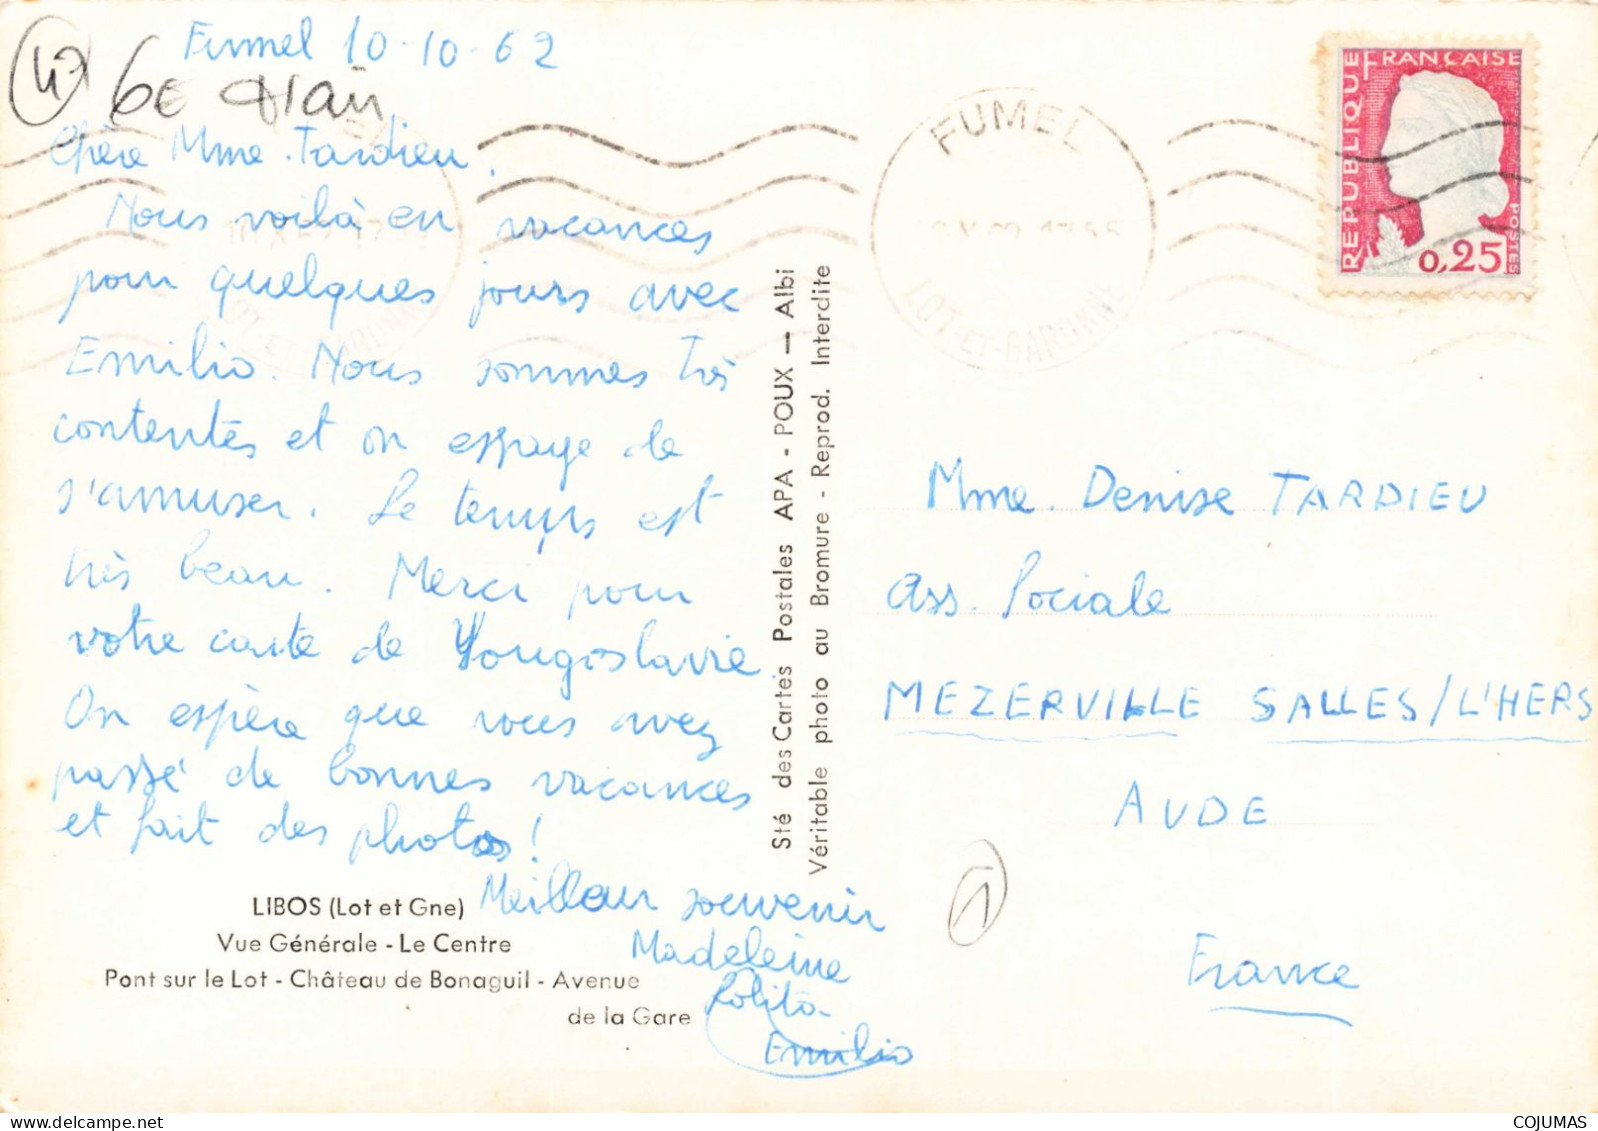 Fumel 10-10-62
47
6E
Chère Mme. Tardieu.
Nous voilà en vacances
pour quelques jours avec
Emilio. Nous sommes très
contentes et on essaye de
s'amuser. Le temps est
très beau. Merci pour
votre carte de Yougoslavie
On espère que vous avez
passé de bonnes vacances
et fait des photos!
Meilleur souvenir
Madeleine
Lolita
Emilio
LIBOS (Lot et Gne)
Vue Générale - Le Centre
Pont sur le Lot - Château de Bonaguil - Avenue
de la Gare
Sté des Cartes Postales APA - POUX — Albi
Véritable photo au Bromure - Reprod. Interdite
FUMEL
LOT-ET-GARONNE
RÉPUBLIQUE FRANÇAISE
0,25
POSTES
Mme. Denise TARDIEU
Ass. Sociale
MEZERVILLE SALLES/L'HERS
AUDE
France
1
COJUMAS